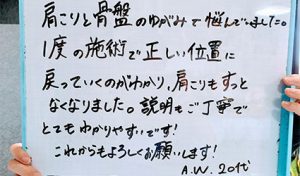 肩こりと骨盤のゆがみで悩んでいました。
1度の施術で正しい位置に
戻っていくのがわかり、肩こりもずっと
なくなりました。説明もご丁寧で
とてもわかりやすいです!
これからもよろしくお願いします!
A.W. 20代